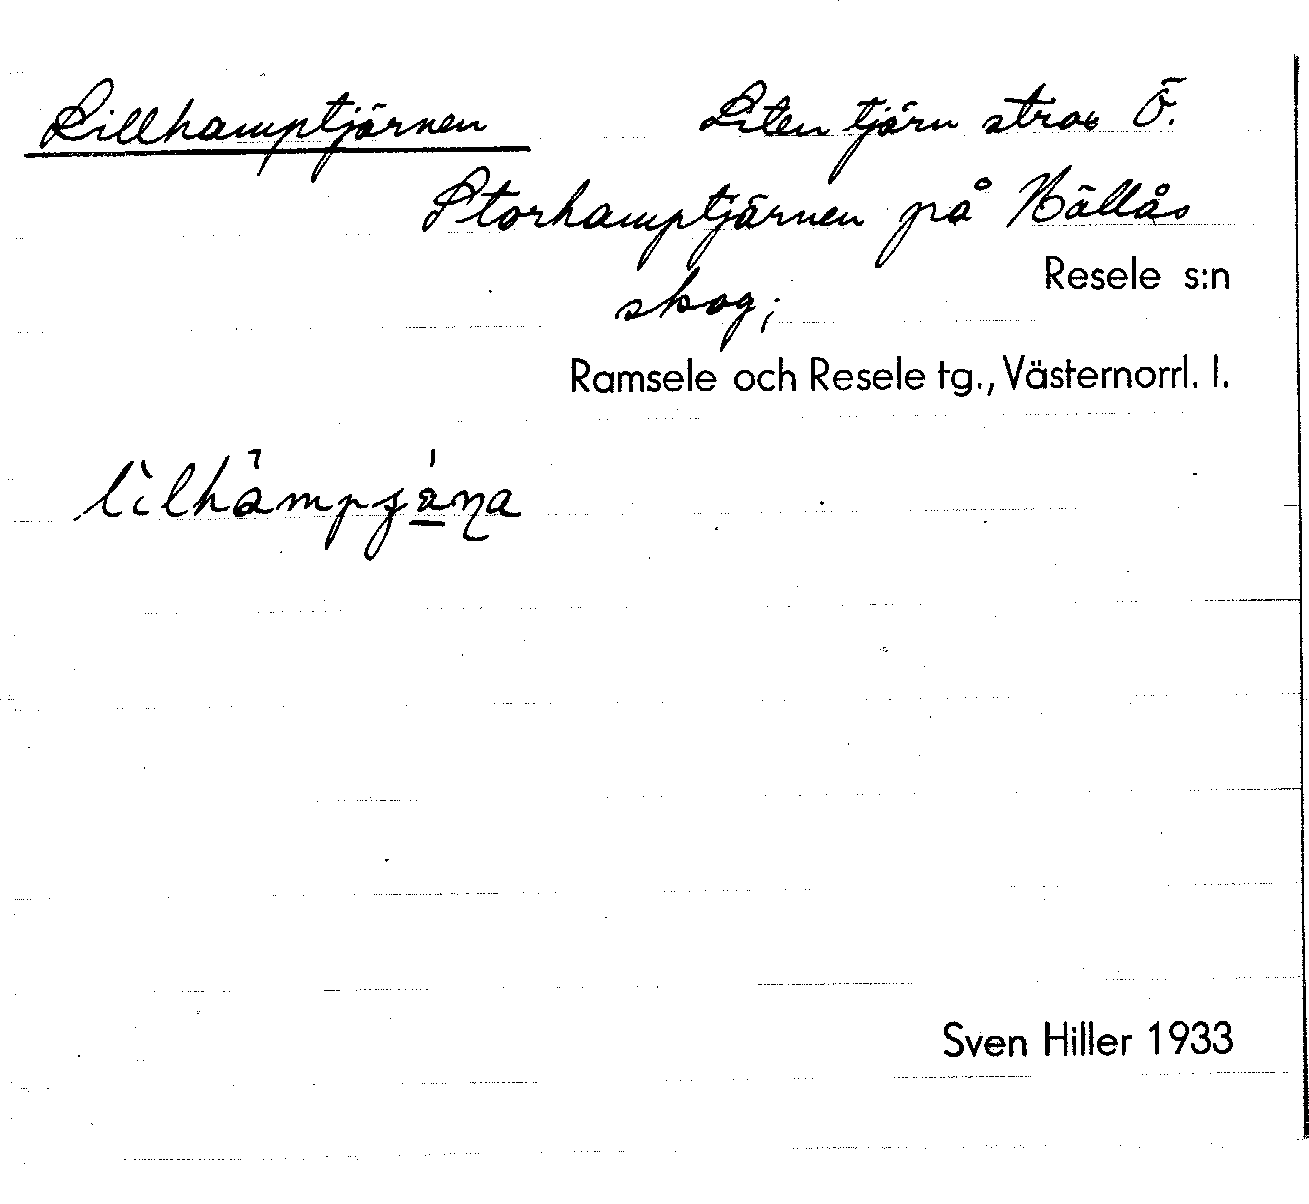 Lillhamptjärnen Liten tjärn strax Ö.
Storhamptjärnen på Hällås
skog;
Resele s:n
Ramsele och Resele tg., Västernorrl. l.
Sven Hiller 1933